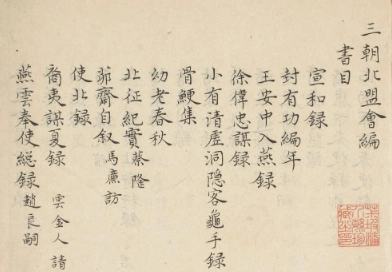 三朝北盟會編
書目
宣和録
封有功編年
王安中入燕録
徐偉忠謀録
小有清虛洞隐客龜手録
骨鯁集
幼老春秋
北征紀實 蔡隆
茆齋自叙 馬廉訪
使北録
裔夷謀夏録 雲金人請
燕雲奉使總録 趙良嗣